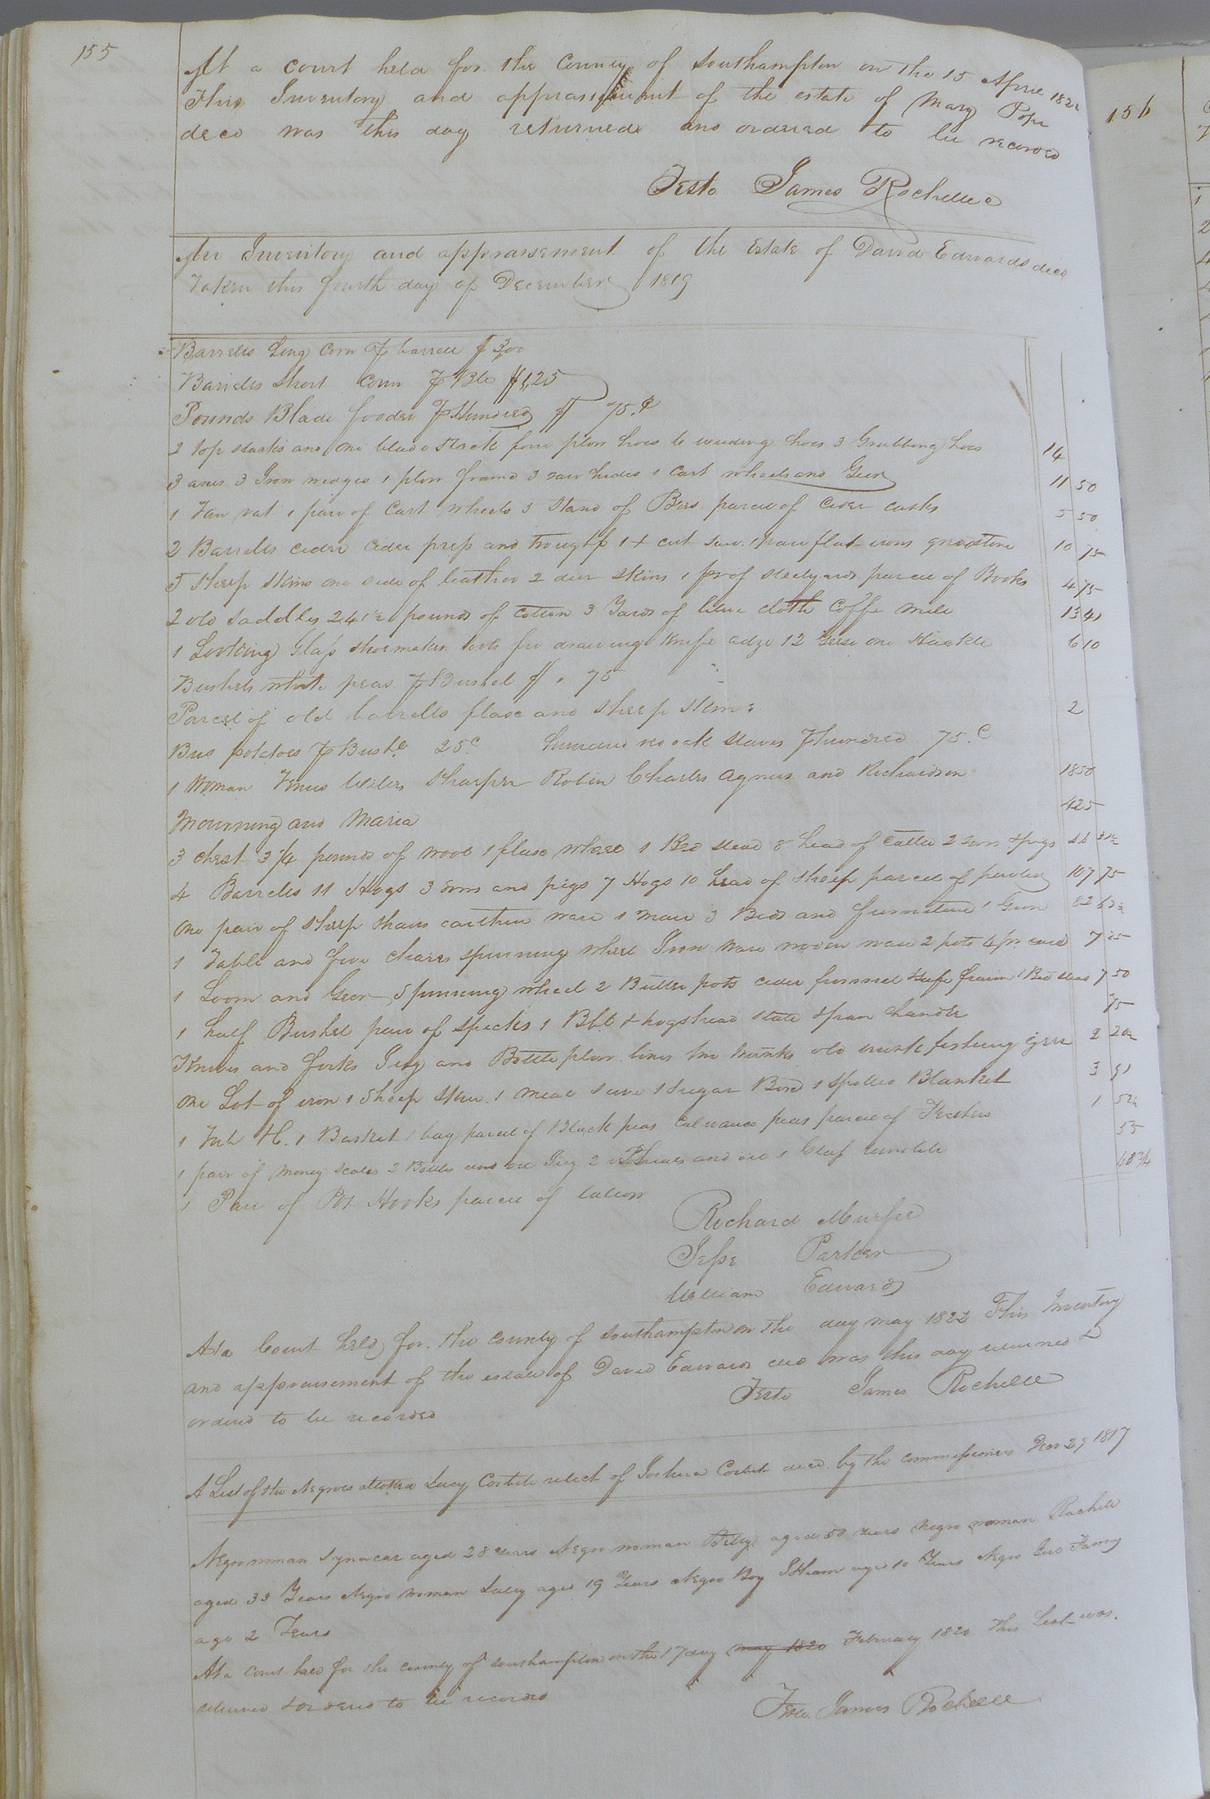 155
At a court held for the County of Southampton on the 15 April 1822
This Inventory and appraisement of the estate of Mary Pope
decd was this day returned and ordered to be recorded
Teste James Rochelle
156
An Inventory and appraisement of the Estate of David Edwards decd
Taken this fourth day of December 1819
Barrells Long Corn barrell $
Barrells Short Corn Bbl $1,25
Pounds Blade fodder Hundred $ 75.
2 top stacks and one blade stack four plow hoes 6 weeding hoes 3 Grubbing hoes 14
3 axes 3 Iron wedges 1 plow frame 3 raw hides 1 Cart wheels and Geer 11 50
1 Tan vat 1 pair of Cart wheels 5 Stand of Bees parcel of cider casks 5 50
2 Barrells cider cider press and trough 1 + cut saw 1 pair flat irons grindstone 10 75
5 Sheep Skins one side of leather 2 deer Skins 1 pr of steelyards parcel of Books 4 75
2 old Saddles 24½ pounds of Cotton 3 Yards of blue cloth Coffe mill 13 41
1 Looking Glass Shoemakers tools drawing knife adze 12 Geese one Hackle 6 10
Bushels white peas Bushel $ . 75
Parcel of old barrells flax and Sheep Skins 2
Bus potatoes Bushl 25c staves hundred 75.c
1 Woman Venus Sharper Robin Charles Agnus and Richardson 1850
Mourning and Maria 425
3 chest 3¾ pounds of wool 1 flax wheel 1 Bed stead 8 head of cattle 2 sows & pigs
4 Barrells 11 Hogs 3 Sows and pigs 7 Hogs 10 head of Sheep parcel of 107 75
One pair of Sheep Shears earthen ware 1 mare 3 Beds and furniture 1 Gun
1 Table and five chairs Spinning wheel Iron ware wooden ware 2 pots 4 pr cards 7 25
1 Loom and Geer Spinning wheel 2 Butter pots cider funnel frame 1 Bed stead 7 50
1 half Bushel pair of Specks 1 Bbl & hogshead 75
Knives and forks Jug and Bottle plow lines two trunks old trunk fishing geer 2
One Lot of iron 1 Sheep Skin 1 meal sieve 1 Sugar Box 1 Spotted Blanket 3 51
1 Basket 1 bag parcel of Black peas peas parcel of Feathers 1
1 pair of money scales 2 Bottles and one Jug 2 and one 1 Glass tumbler 55
1 Pair of Pot Hooks parcel of cotton
Richard Murfee
Jesse Parker
William Edwards
At a Court held for the county of Southampton on the day may 1822 This Inventory
and appraisement of the estate of David Edwards decd was this day returned &
ordered to be recorded
Teste James Rochelle
A List of the Negroes Lucy relict of Joshua decd. by the commissioners 29 1817
Negro woman aged 28 years Negro woman aged 50 years Negro woman Rachell
aged 33 Years Negro woman aged 19 Years Negro Boy aged 10 Years Negro
age 2 Years
At a court held for the county of Southampton on the 17 day may 1820 February 1820 This List was
returned & ordered to be recorded
Teste James Rochelle